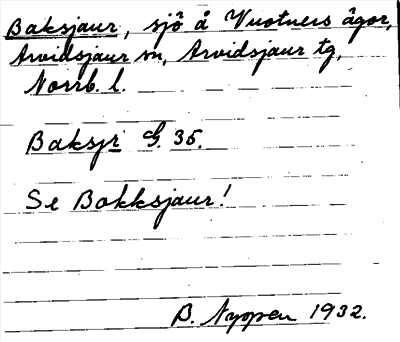 Baksjaur, sjö å Vuotners ägor,
Arvidsjaur sn, Arvidsjaur tg,
Norrb. l.
Baksjr G. 35.
Se Bakksjaur!
B. Nyppen 1932.